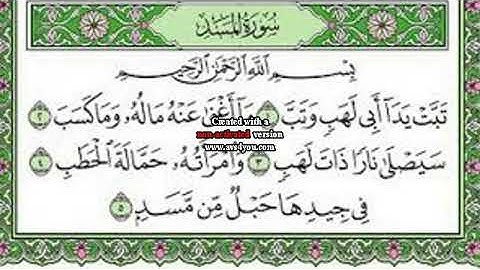 سُورَةُ المَسَدِ
بِسْمِ اللَّهِ الرَّحْمَٰنِ الرَّحِيمِ
تَبَّتْ يَدَا أَبِي لَهَبٍ وَتَبَّ ۝١ مَا أَغْنَىٰ عَنْهُ مَالُهُ وَمَا كَسَبَ ۝٢
سَيَصْلَىٰ نَارًا ذَاتَ لَهَبٍ ۝٣ وَامْرَأَتُهُ حَمَّالَةَ الْحَطَبِ ۝٤
فِي جِيدِهَا حَبْلٌ مِّن مَّسَدٍ ۝٥
Created with a
non-activated version
www.avs4you.com